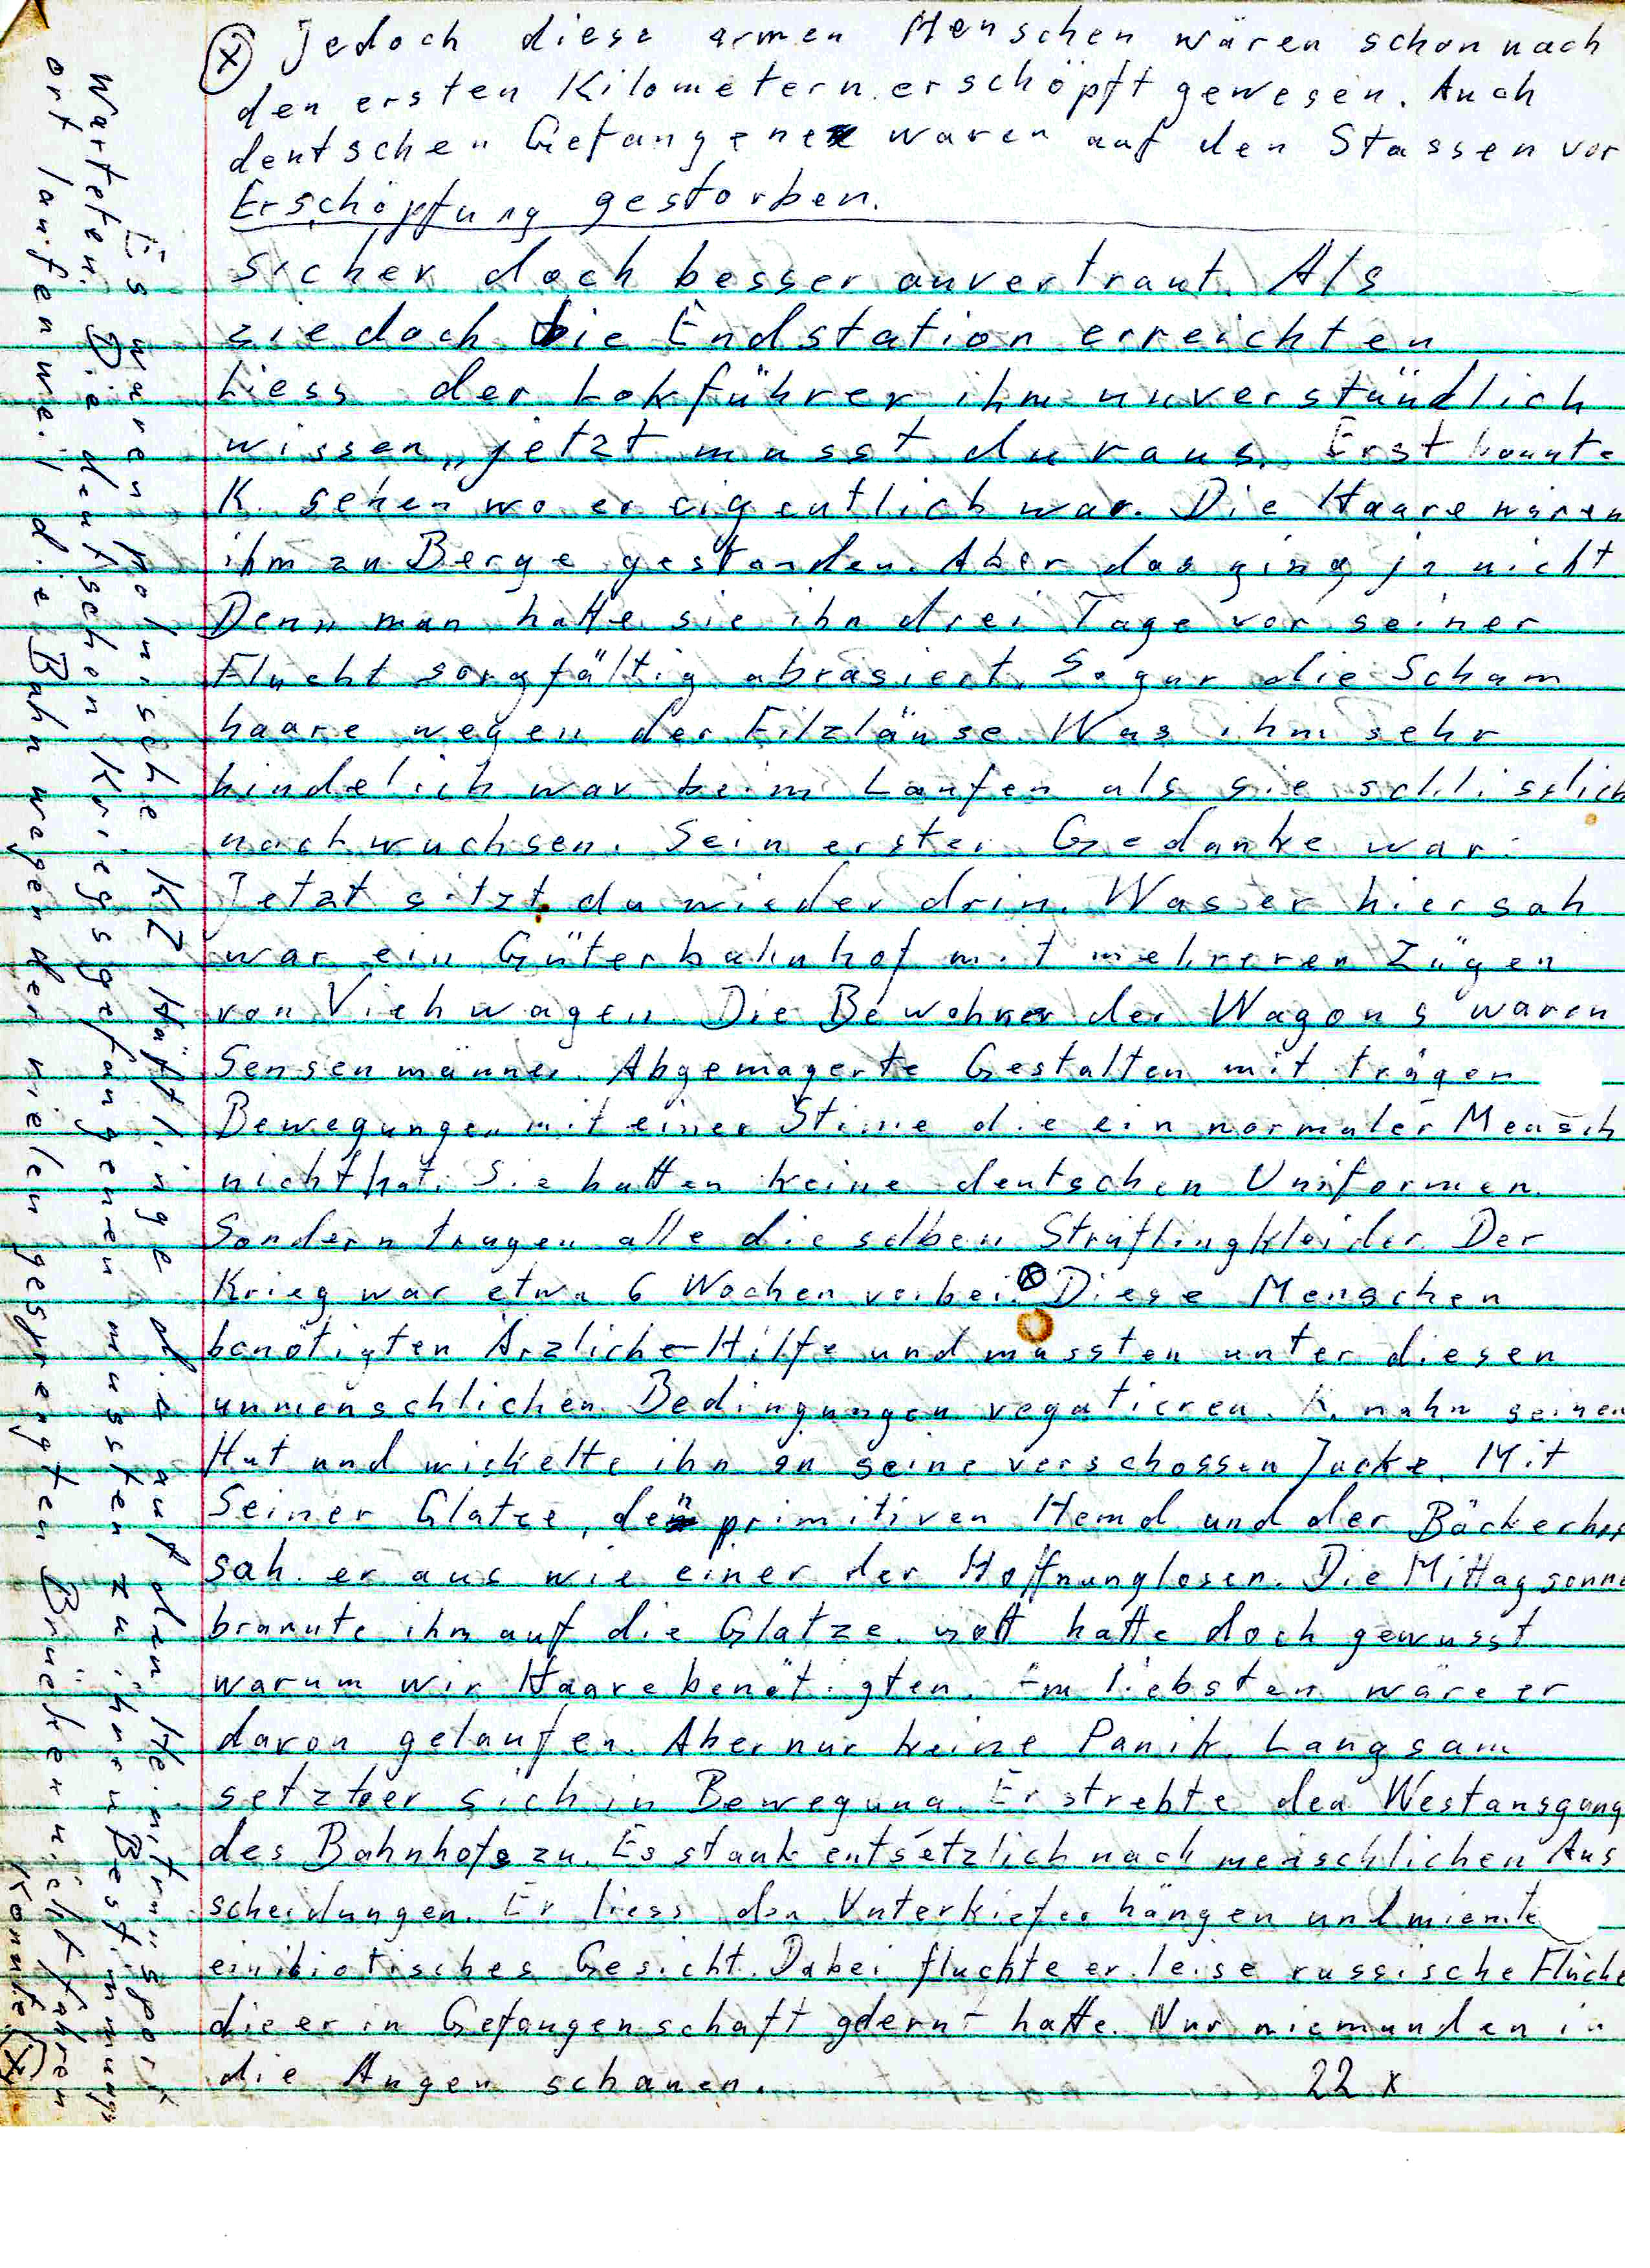 (x) Jedoch diese armen Menschen wären schon nach
den ersten Kilometern erschöpft gewesen. Auch
deutschen Gefangene waren auf den Stassen vor
Erschöpfung gestorben.
sicher doch besser anvertraut. Als
sie doch die Endstation erreichten
liess der Lokführer ihm unverständlich
wissen, jetzt musst du raus. Erst konnte
K. sehen wo er eigentlich war. Die Haare wären
ihm zu Berge gestanden. Aber das ging ja nicht.
Denn man hatte sie ihn drei Tage vor seiner
Flucht sorgfältig abrasiert. Sogar die Scham
haare wegen der Filzläuse. Was ihm sehr
hindelich war beim Laufen als sie schlislich
nachwuchsen. Sein erster Gedanke war:
Jetzt sitzt du wieder drin. Was er hier sah
war ein Güterbahnhof mit mehreren Zügen
von Viehwagen. Die Bewohner der Wagons waren
Sensenmänner. Abgemagerte Gestalten mit trägen
Bewegungen mit einer Stime die ein normaler Mensch
nicht hat. Sie hatten keine deutschen Uniformen.
Sondern trugen alle die selben Sträflingkleider. Der
Krieg war etwa 6 Wochen vorbei. (x) Diese Menschen
benötigten Ärzliche Hilfe und mussten unter diesen
unmenschlichen Bedingungen vegatieren. K. nahm seinen
Hut und wickelte ihn in seine verschossen Jacke. Mit
Seiner Glatze, den primitiven Hemd und der
sah er aus wie einer der Hoffnunglosen. Die Mittagsonne
brannte ihm auf die Glatze. Gott hatte doch gewusst
warum wir Haare benötigten. Am liebsten wäre er
davon gelaufen. Aber nur keine Panik. Langsam
setzte er sich in Bewegung. Er strebte den Westausgang
des Bahnhofs zu. Es stank entsetzlich nach menschlichen Aus
scheidungen. Er liess den Unterkiefer hängen und miemte
ein idiotisches Gesicht. Dabei fluchte er leise russische Flüche
die er in Gefangenschaft gelernt hatte. Nur niemanden in
die Augen schauen.
22 x
Es waren polnische KZ Häftlinge die auf den Heimtransport
warteten. Die deutschen Kriegsgefangenen mussten zu ihren Bestimmungs
ort laufen weil die Bahn wegen der vielen gesprengten Brücken nicht fahren
konnte. (x)